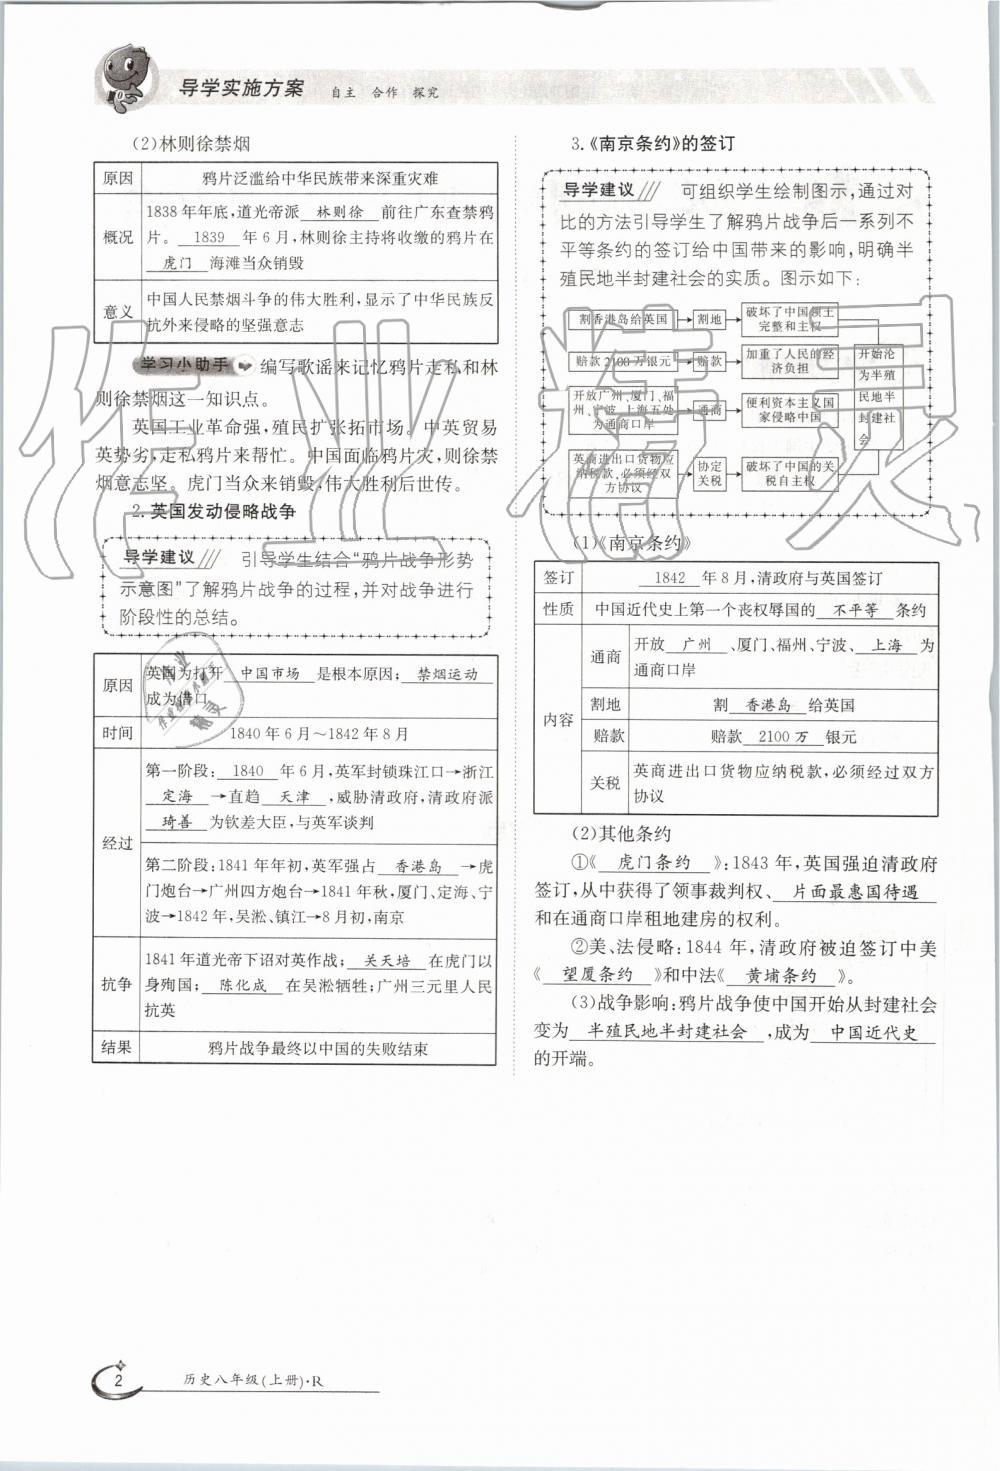 导学实施方案 自主 合作 探究
(2)林则徐禁烟
原因 鸦片泛滥给中华民族带来深重灾难
概况
1838年年底,道光帝派 林则徐 前往广东查禁鸦
片。 1839 年6月,林则徐主持将收缴的鸦片在
虎门 海滩当众销毁
意义
中国人民禁烟斗争的伟大胜利,显示了中华民族反
抗外来侵略的坚强意志
学习小助手 编写歌谣来记忆鸦片走私和林
则徐禁烟这一知识点。
英国工业革命强,殖民扩张拓市场。中英贸易
英势劣,走私鸦片来帮忙。中国面临鸦片灾,则徐禁
烟意志坚。虎门当众来销毁,伟大胜利后世传。
2.英国发动侵略战争
导学建议 引导学生结合“鸦片战争形势
示意图”了解鸦片战争的过程,并对战争进行
阶段性的总结。
原因
英国为打开 中国市场 是根本原因; 禁烟运动
成为借口
时间 1840年6月～1842年8月
经过
第一阶段: 1840 年6月,英军封锁珠江口→浙江
定海 →直趋 天津 ,威胁清政府,清政府派
琦善 为钦差大臣,与英军谈判
第二阶段:1841年年初,英军强占 香港岛 →虎
门炮台→广州四方炮台→1841年秋,厦门、定海、宁
波→1842年,吴淞、镇江→8月初,南京
抗争
1841年道光帝下诏对英作战; 关天培 在虎门以
身殉国; 陈化成 在吴淞牺牲;广州三元里人民
抗英
结果 鸦片战争最终以中国的失败结束
3.《南京条约》的签订
导学建议 可组织学生绘制图示,通过对
比的方法引导学生了解鸦片战争后一系列不
平等条约的签订给中国带来的影响,明确半
殖民地半封建社会的实质。图示如下:
割香港岛给英国 割地 破坏了中国领土
完整和主权
赔款2100万银元 赔款 加重了人民的经
济负担
开放广州、厦门、福
州、宁波、上海五处
为通商口岸
通商
便利资本主义国
家侵略中国
英商进出口货物应
纳税款,必须经双
方协议
协定
关税
破坏了中国的关
税自主权
开始沦
为半殖
民地半
封建社
会
(1)《南京条约》
签订 1842 年8月,清政府与英国签订
性质 中国近代史上第一个丧权辱国的 不平等 条约
内容
通商
开放 广州 、厦门、福州、宁波、 上海 为
通商口岸
割地 割 香港岛 给英国
赔款 赔款 2100万 银元
关税
英商进出口货物应纳税款,必须经过双方
协议
(2)其他条约
①《 虎门条约 》:1843年,英国强迫清政府
签订,从中获得了领事裁判权、 片面最惠国待遇
和在通商口岸租地建房的权利。
②美、法侵略:1844年,清政府被迫签订中美
《 望厦条约 》和中法《 黄埔条约 》。
(3)战争影响:鸦片战争使中国开始从封建社会
变为 半殖民地半封建社会 ,成为 中国近代史
的开端。
作业精灵
2 历史八年级(上册)·R